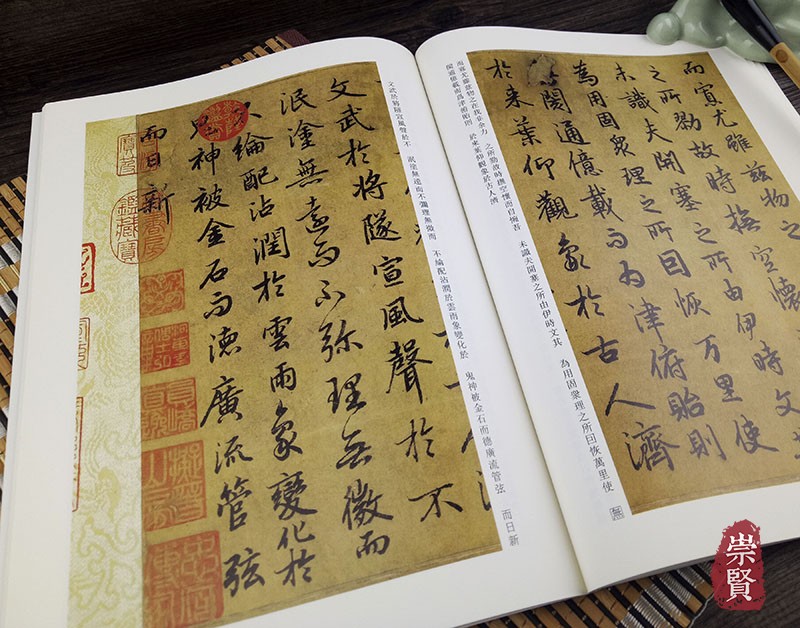 而寡尤雖茲物之
之所勠故時撫空懷
未識夫開塞之所由伊時文
為用固衆理之所因恢万里使
閡通億載而為津俯貽則
於来葉仰觀象於古人濟
而寡尤雖茲物之在我非余力 之所勠故時撫空懷而自惋吾 未識夫開塞之所由伊時文其 為用固衆理之所因恢萬里使 無
閡通億載而為津俯貽則 於來葉仰觀象於古人濟
文武於將墜宣風聲於不
泯塗無遠而不弥理無微而
不綸配沾潤於雲雨象變化於
鬼神被金石而德廣流管弦
而日新
文武於將墜宣風聲於不 泯塗無遠而不彌理無微而 不綸配沾潤於雲雨象變化於 鬼神被金石而德廣流管弦 而日新
崇賢